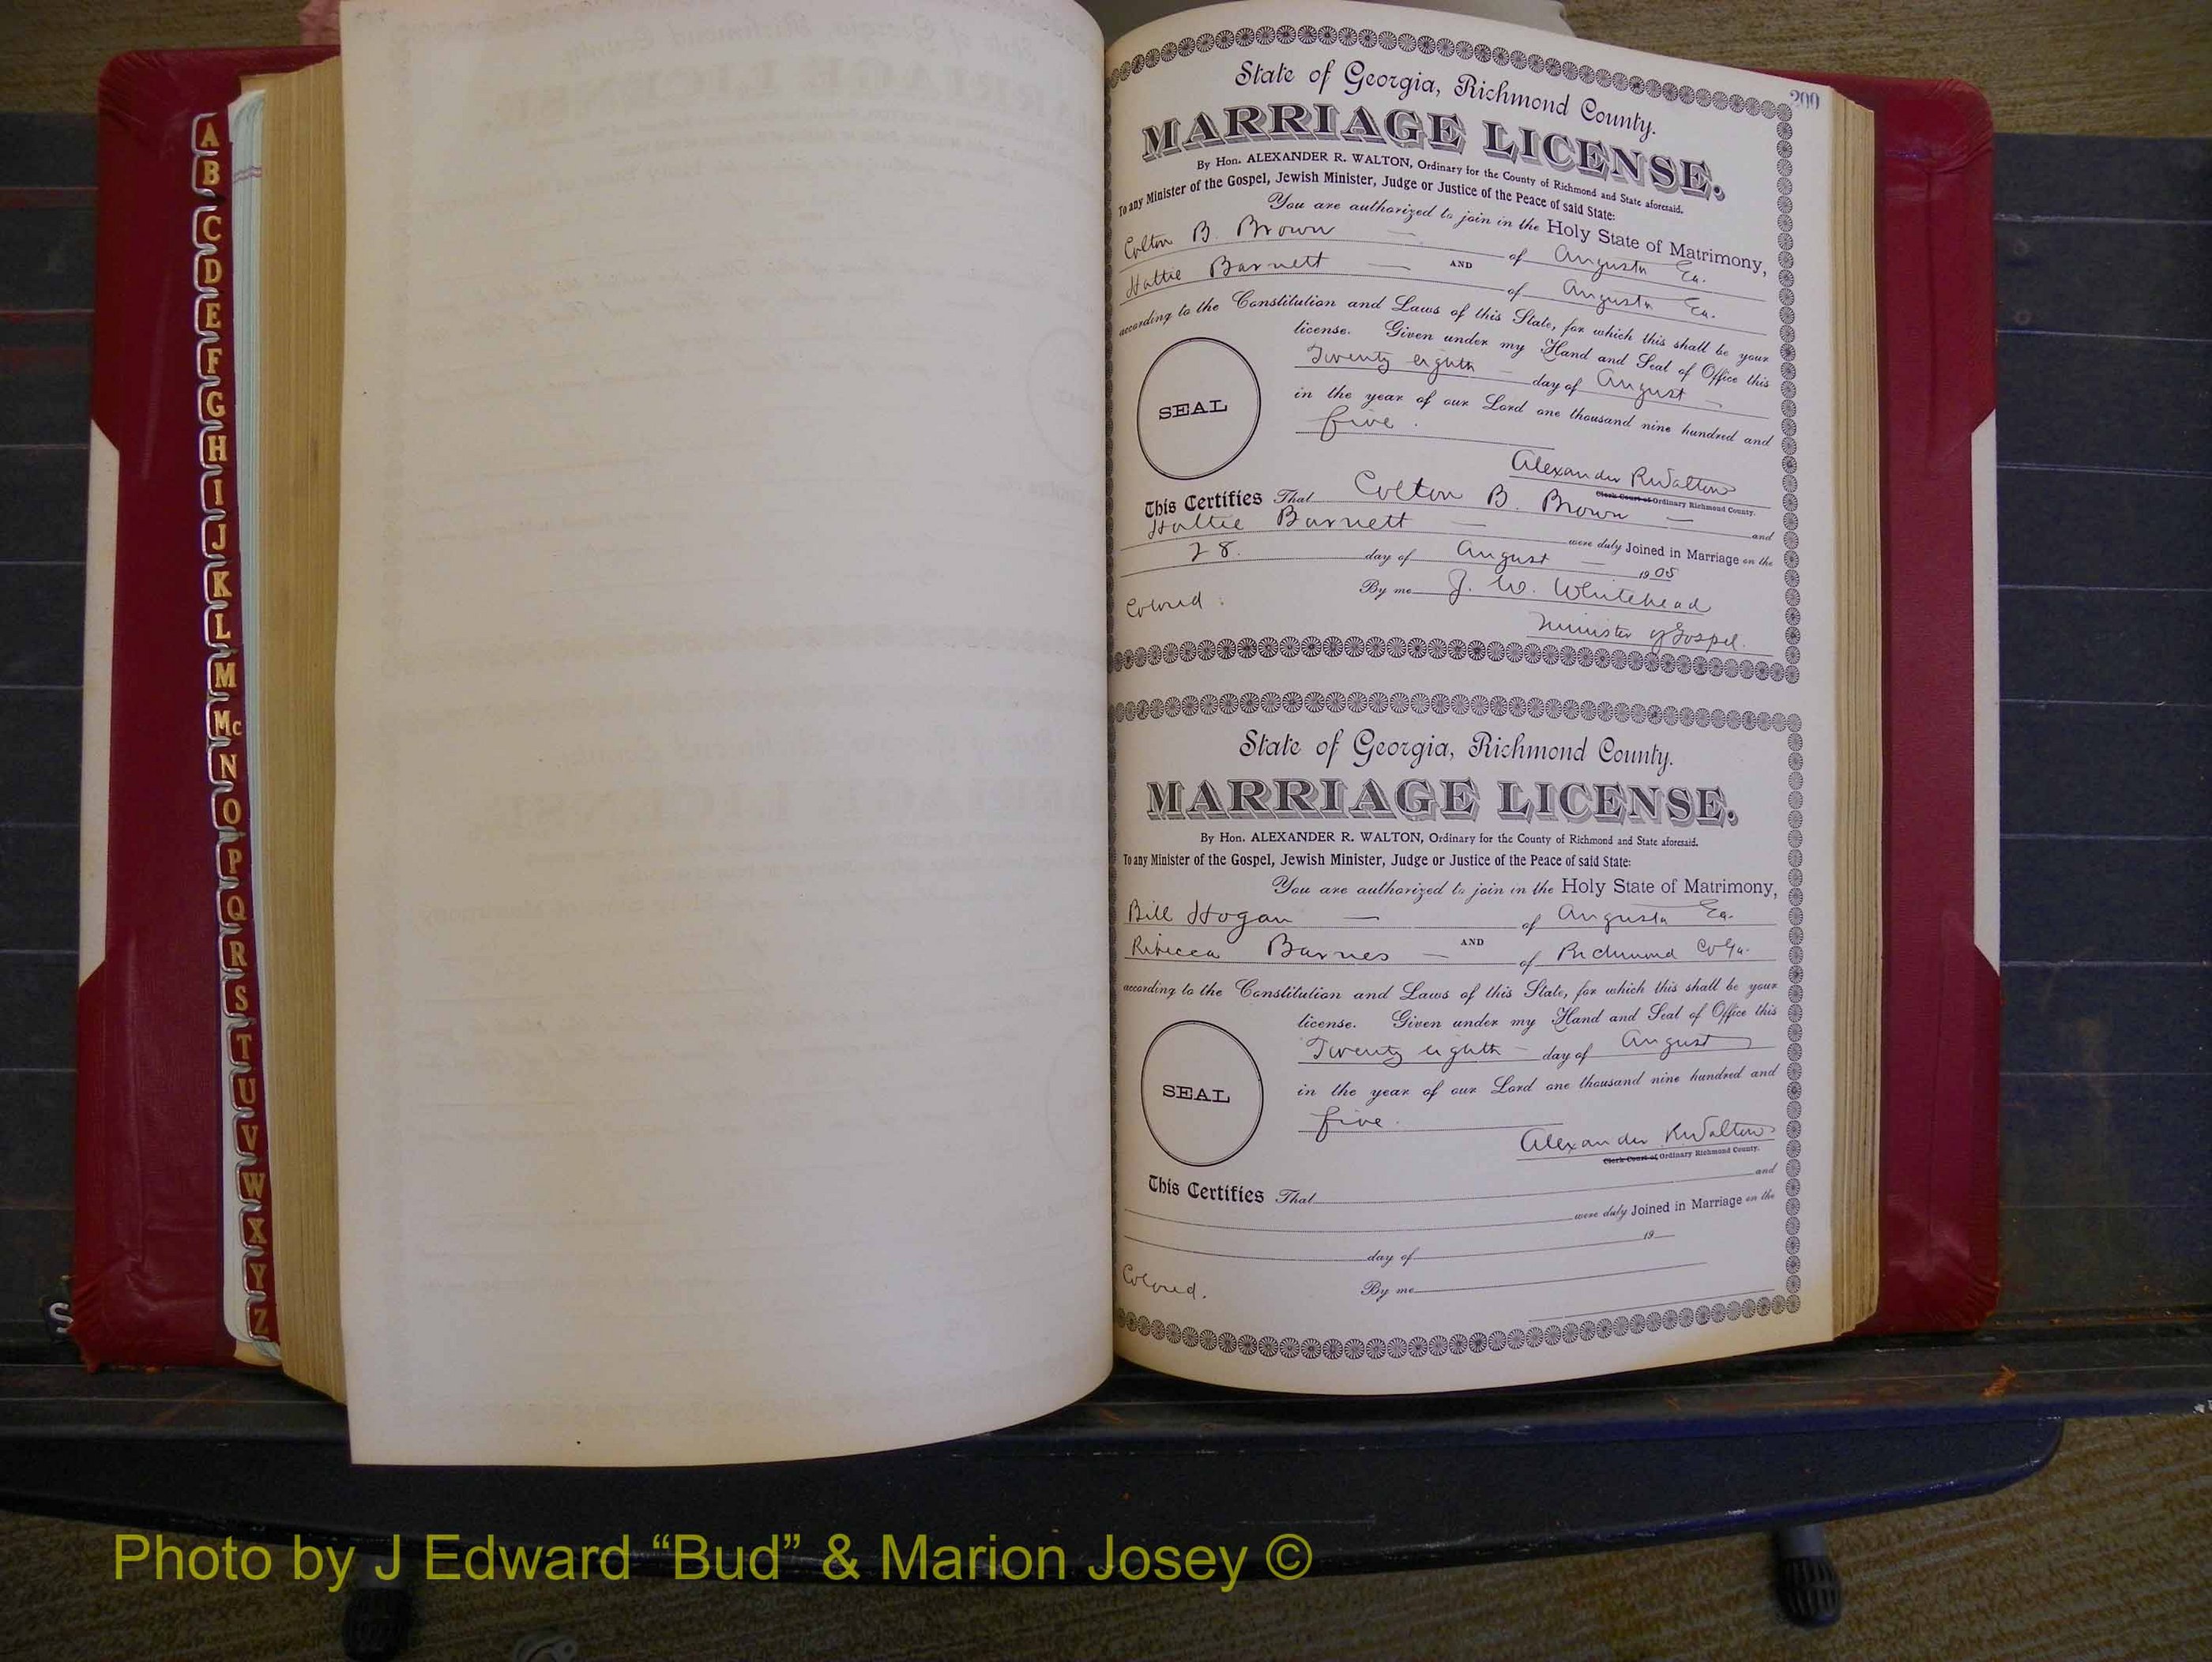 A
B
C
D
E
F
G
H
I
J
K
L
M
Mc
N
O
P
Q
R
S
T
U
V
W
X
Y
Z
S
200
State of Georgia, Richmond County.
MARRIAGE LICENSE.
By Hon. ALEXANDER R. WALTON, Ordinary for the County of Richmond and State aforesaid.
To any Minister of the Gospel, Jewish Minister, Judge or Justice of the Peace of said State:
You are authorized to join in the Holy State of Matrimony,
Colton B. Brown — of Augusta Ga.
AND
Hattie Barnett — of Augusta Ga.
according to the Constitution and Laws of this State, for which this shall be your
license. Given under my Hand and Seal of Office this
Twenty eighth — day of August —
in the year of our Lord one thousand nine hundred and
five.
SEAL
Alexander R Walton
Clerk Court of Ordinary Richmond County.
This Certifies That Colton B. Brown — and
Hattie Barnett — were duly Joined in Marriage on the
28. day of August — 1905
By me J. W. Whitehead
Colored.
Minister of Gospel.
State of Georgia, Richmond County.
MARRIAGE LICENSE.
By Hon. ALEXANDER R. WALTON, Ordinary for the County of Richmond and State aforesaid.
To any Minister of the Gospel, Jewish Minister, Judge or Justice of the Peace of said State:
You are authorized to join in the Holy State of Matrimony,
Bill Hogan — of Augusta Ga.
AND
Rebecca Barnes — of Richmond Co Ga.
according to the Constitution and Laws of this State, for which this shall be your
license. Given under my Hand and Seal of Office this
Twenty eighth — day of August
in the year of our Lord one thousand nine hundred and
five.
SEAL
Alexander R Walton
Clerk Court of Ordinary Richmond County.
This Certifies That and
were duly Joined in Marriage on the
day of 19
By me
Colored.
Photo by J Edward “Bud” & Marion Josey ©